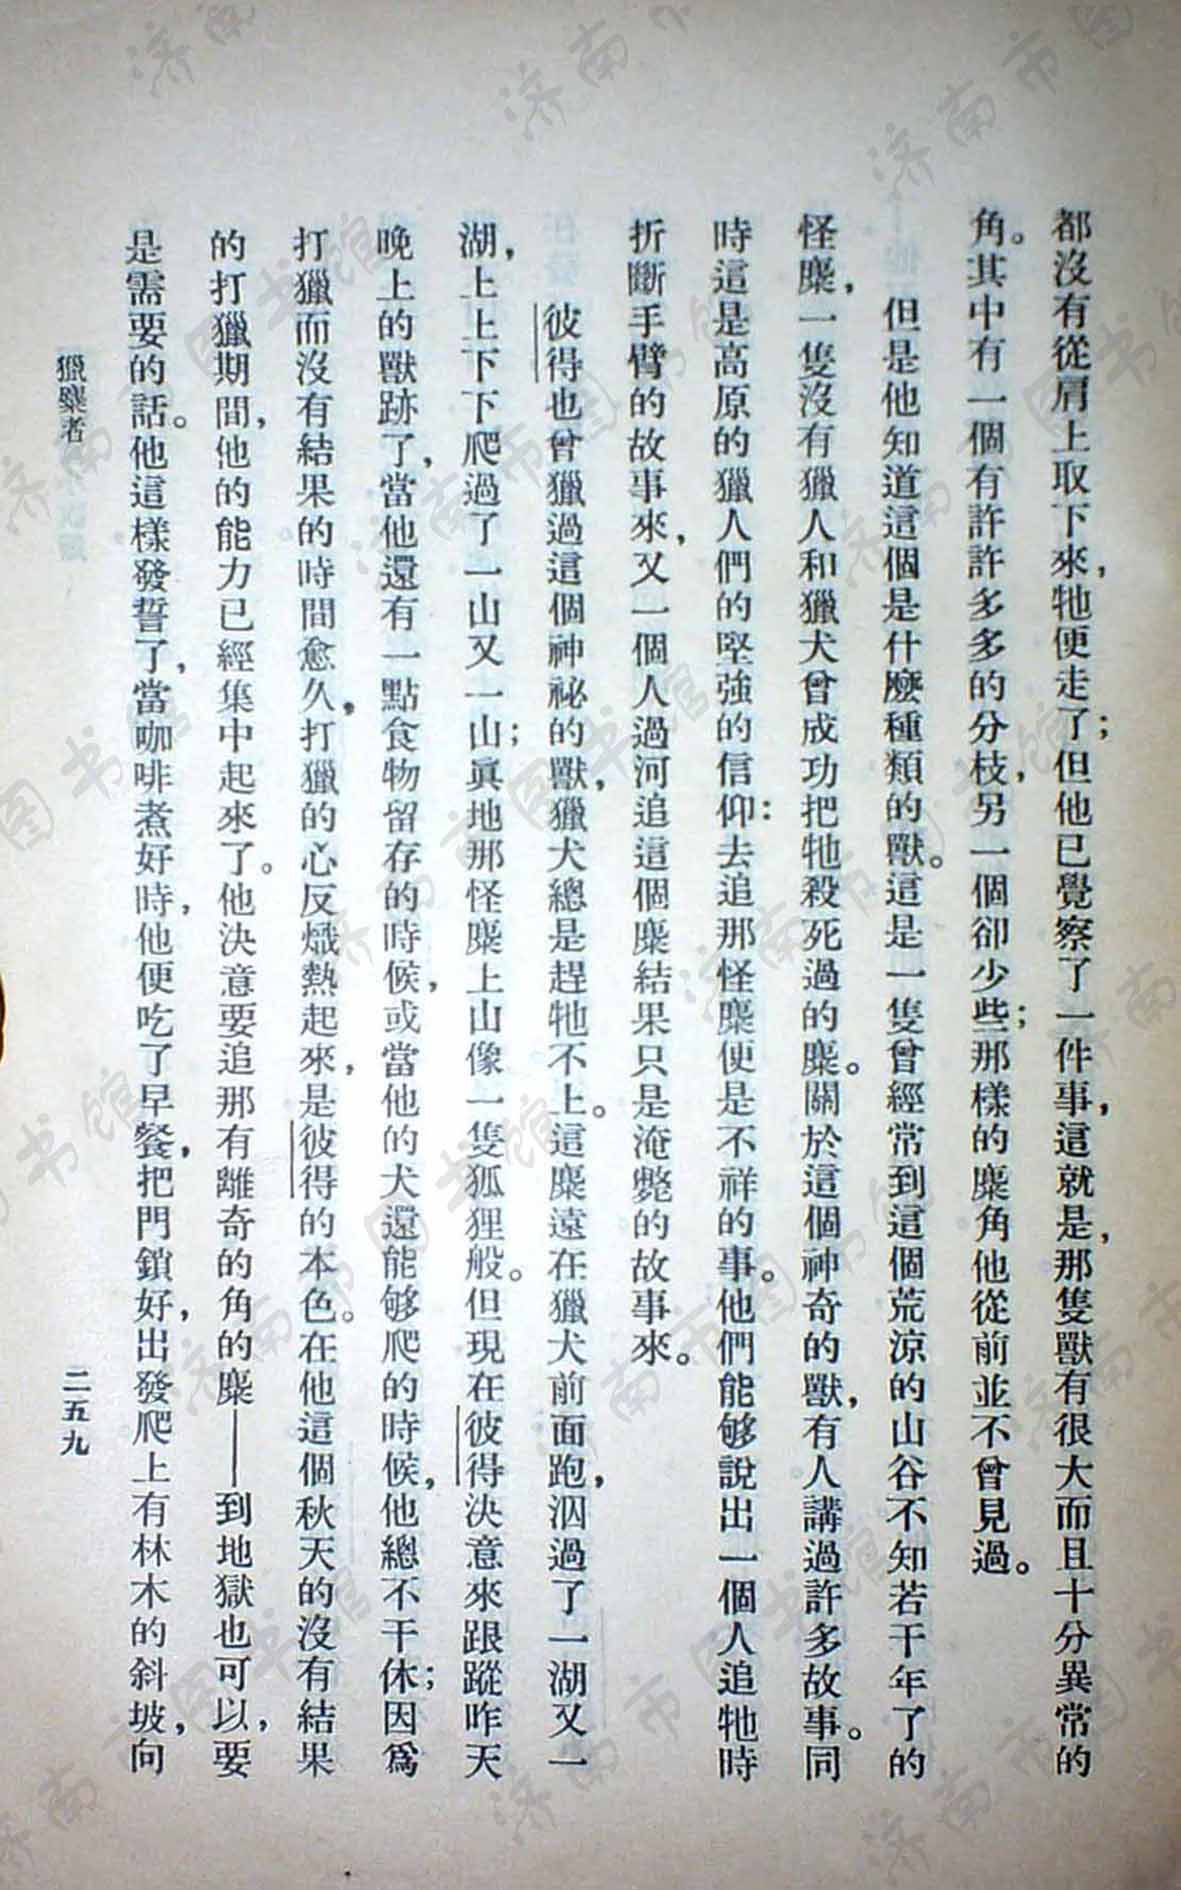 都沒有從肩上取下來，牠便走了；但他已覺察了一件事，這就是，那隻獸有很大而且十分異常的
角。其中有一個有許許多多的分枝，另一個卻少些；那樣的麋角他從前並不曾見過。
但是他知道這個是什麼種類的獸。這是一隻曾經常到這個荒涼的山谷不知若干年了的
怪麋，一隻沒有獵人和獵犬曾成功把牠殺死過的麋。關於這個神奇的獸，有人講過許多故事。同
時這是高原的獵人們的堅強的信仰：去追那怪麋便是不祥的事。他們能够說出一個人追牠時
折斷手臂的故事來，又一個人過河追這個麋結果只是淹斃的故事來。
彼得也曾獵過這個神祕的獸，獵犬總是趕牠不上。這麋遠在獵犬前面跑，泅過了一湖又一
湖，上上下下爬過了一山又一山；真地那怪麋上山像一隻狐狸般。但現在彼得決意來跟蹤昨天
晚上的獸跡了，當他還有一點食物留存的時候，或當他的犬還能够爬的時候，他總不干休；因爲
打獵而沒有結果的時間愈久，打獵的心反熾熱起來，是彼得的本色。在他這個秋天的沒有結果
的打獵期間，他的能力已經集中起來了。他決意要追那有離奇的角的麋——到地獄也可以，要
是需要的話。他這樣發誓了，當咖啡煮好時，他便吃了早餐，把門鎖好，出發爬上有林木的斜坡，向
獵麋者
二五九
济南市图书馆